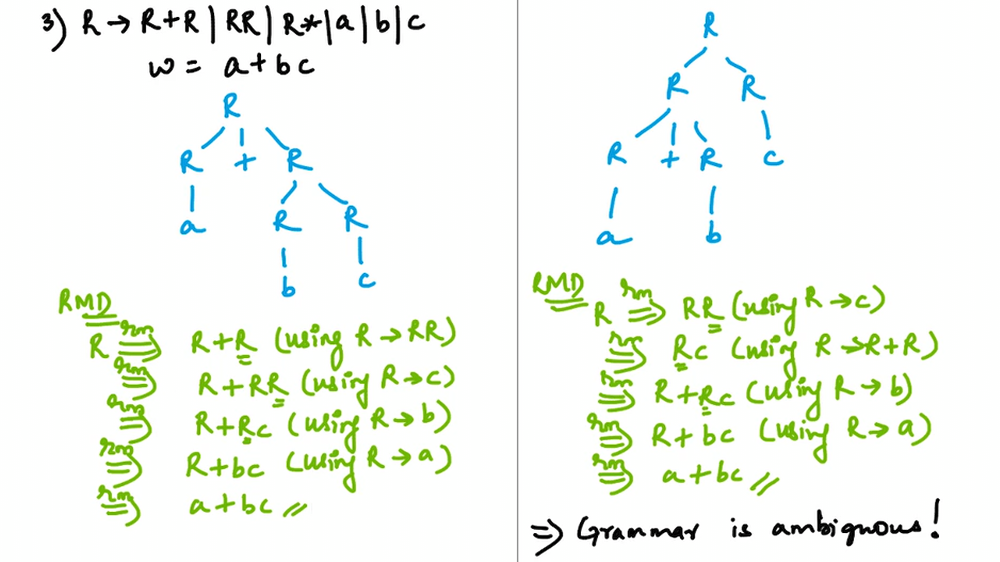 3) R → R+R | RR | R* | a | b | c
w = a+bc
R
R + R
a R R
b c
RMD
R rm⟹ R+R (using R → RR)
rm⟹ R+RR (using R → c)
rm⟹ R+Rc (using R → b)
rm⟹ R+bc (using R → a)
rm⟹ a+bc //
R
R R
R + R c
a b
RMD
R rm⟹ RR (using R → c)
rm⟹ Rc (using R → R+R)
rm⟹ R+Rc (using R → b)
rm⟹ R+bc (using R → a)
rm⟹ a+bc //
⇒ Grammar is ambiguous!